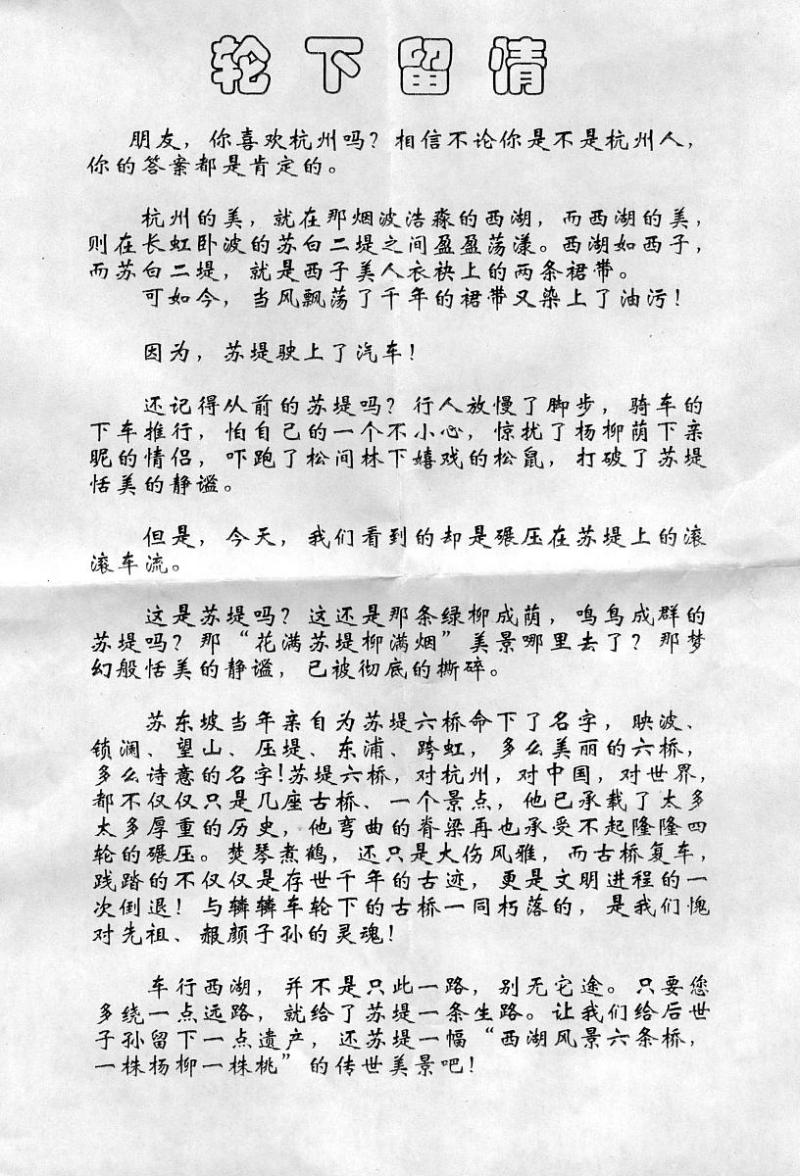 轮下留情
朋友，你喜欢杭州吗？相信不论你是不是杭州人，
你的答案都是肯定的。
杭州的美，就在那烟波浩淼的西湖，而西湖的美，
则在长虹卧波的苏白二堤之间盈盈荡漾。西湖如西子，
而苏白二堤，就是西子美人衣袂上的两条裙带。
可如今，当风飘荡了千年的裙带又染上了油污！
因为，苏堤驶上了汽车！
还记得从前的苏堤吗？行人放慢了脚步，骑车的
下车推行，怕自己的一个不小心，惊扰了杨柳荫下亲
昵的情侣，吓跑了松间林下嬉戏的松鼠，打破了苏堤
恬美的静谧。
但是，今天，我们看到的却是碾压在苏堤上的滚
滚车流。
这是苏堤吗？这还是那条绿柳成荫，鸣鸟成群的
苏堤吗？那“花满苏堤柳满烟”美景哪里去了？那梦
幻般恬美的静谧，已被彻底的撕碎。
苏东坡当年亲自为苏堤六桥命下了名字，映波、
锁澜、望山、压堤、东浦、跨虹，多么美丽的六桥，
多么诗意的名字!苏堤六桥，对杭州，对中国，对世界，
都不仅仅只是几座古桥、一个景点，他已承载了太多
太多厚重的历史，他弯曲的脊梁再也承受不起隆隆四
轮的碾压。焚琴煮鹤，还只是大伤风雅，而古桥复车，
践踏的不仅仅是存世千年的古迹，更是文明进程的一
次倒退！与辚辚车轮下的古桥一同朽落的，是我们愧
对先祖、赧颜子孙的灵魂！
车行西湖，并不是只此一路，别无它途。只要您
多绕一点远路，就给了苏堤一条生路。让我们给后世
子孙留下一点遗产，还苏堤一幅“西湖风景六条桥，
一株杨柳一株桃”的传世美景吧！